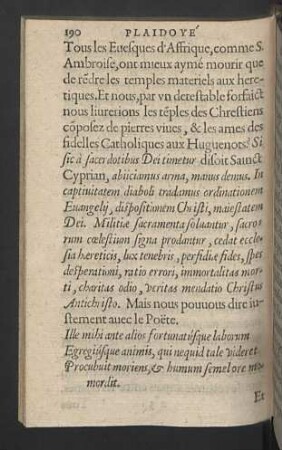 190 PLAIDOYÉ
Tous les Euesques d'Affrique, comme S.
Ambroise, ont mieux aymé mourir que
de rẽdre les temples materiels aux here-
tiques. Et nous, par vn detestable forfaict
nous liurerions les tẽples des Chrestiens
cõposez de pierres viues, & les ames des
fidelles Catholiques aux Huguenots? Si
sic à sacerdotibus Dei timetur disoit Sainct
Cyprian, abiiciamus arma, manus demus. In
captiuitatem diaboli tradamus ordinationem
Euangelij, dispositionem Christi, maiestatem
Dei. Militiæ sacramenta soluantur, sacro-
rum cœlestium signa prodantur, cedat eccle-
sia hæreticis, lux tenebris, perfidiæ fides, spes
desperationi, ratio errori, immortalitas mor-
ti, charitas odio, veritas mendatio Christus
Antichristo. Mais nous pouuous dire iu-
stement auec le Poëte.
Ille mihi ante alios fortunatúsque laborum
Egregiósque animis, qui nequid tale videret
Procubuit moriens, & humum semel ore mo-
mordit.
Et